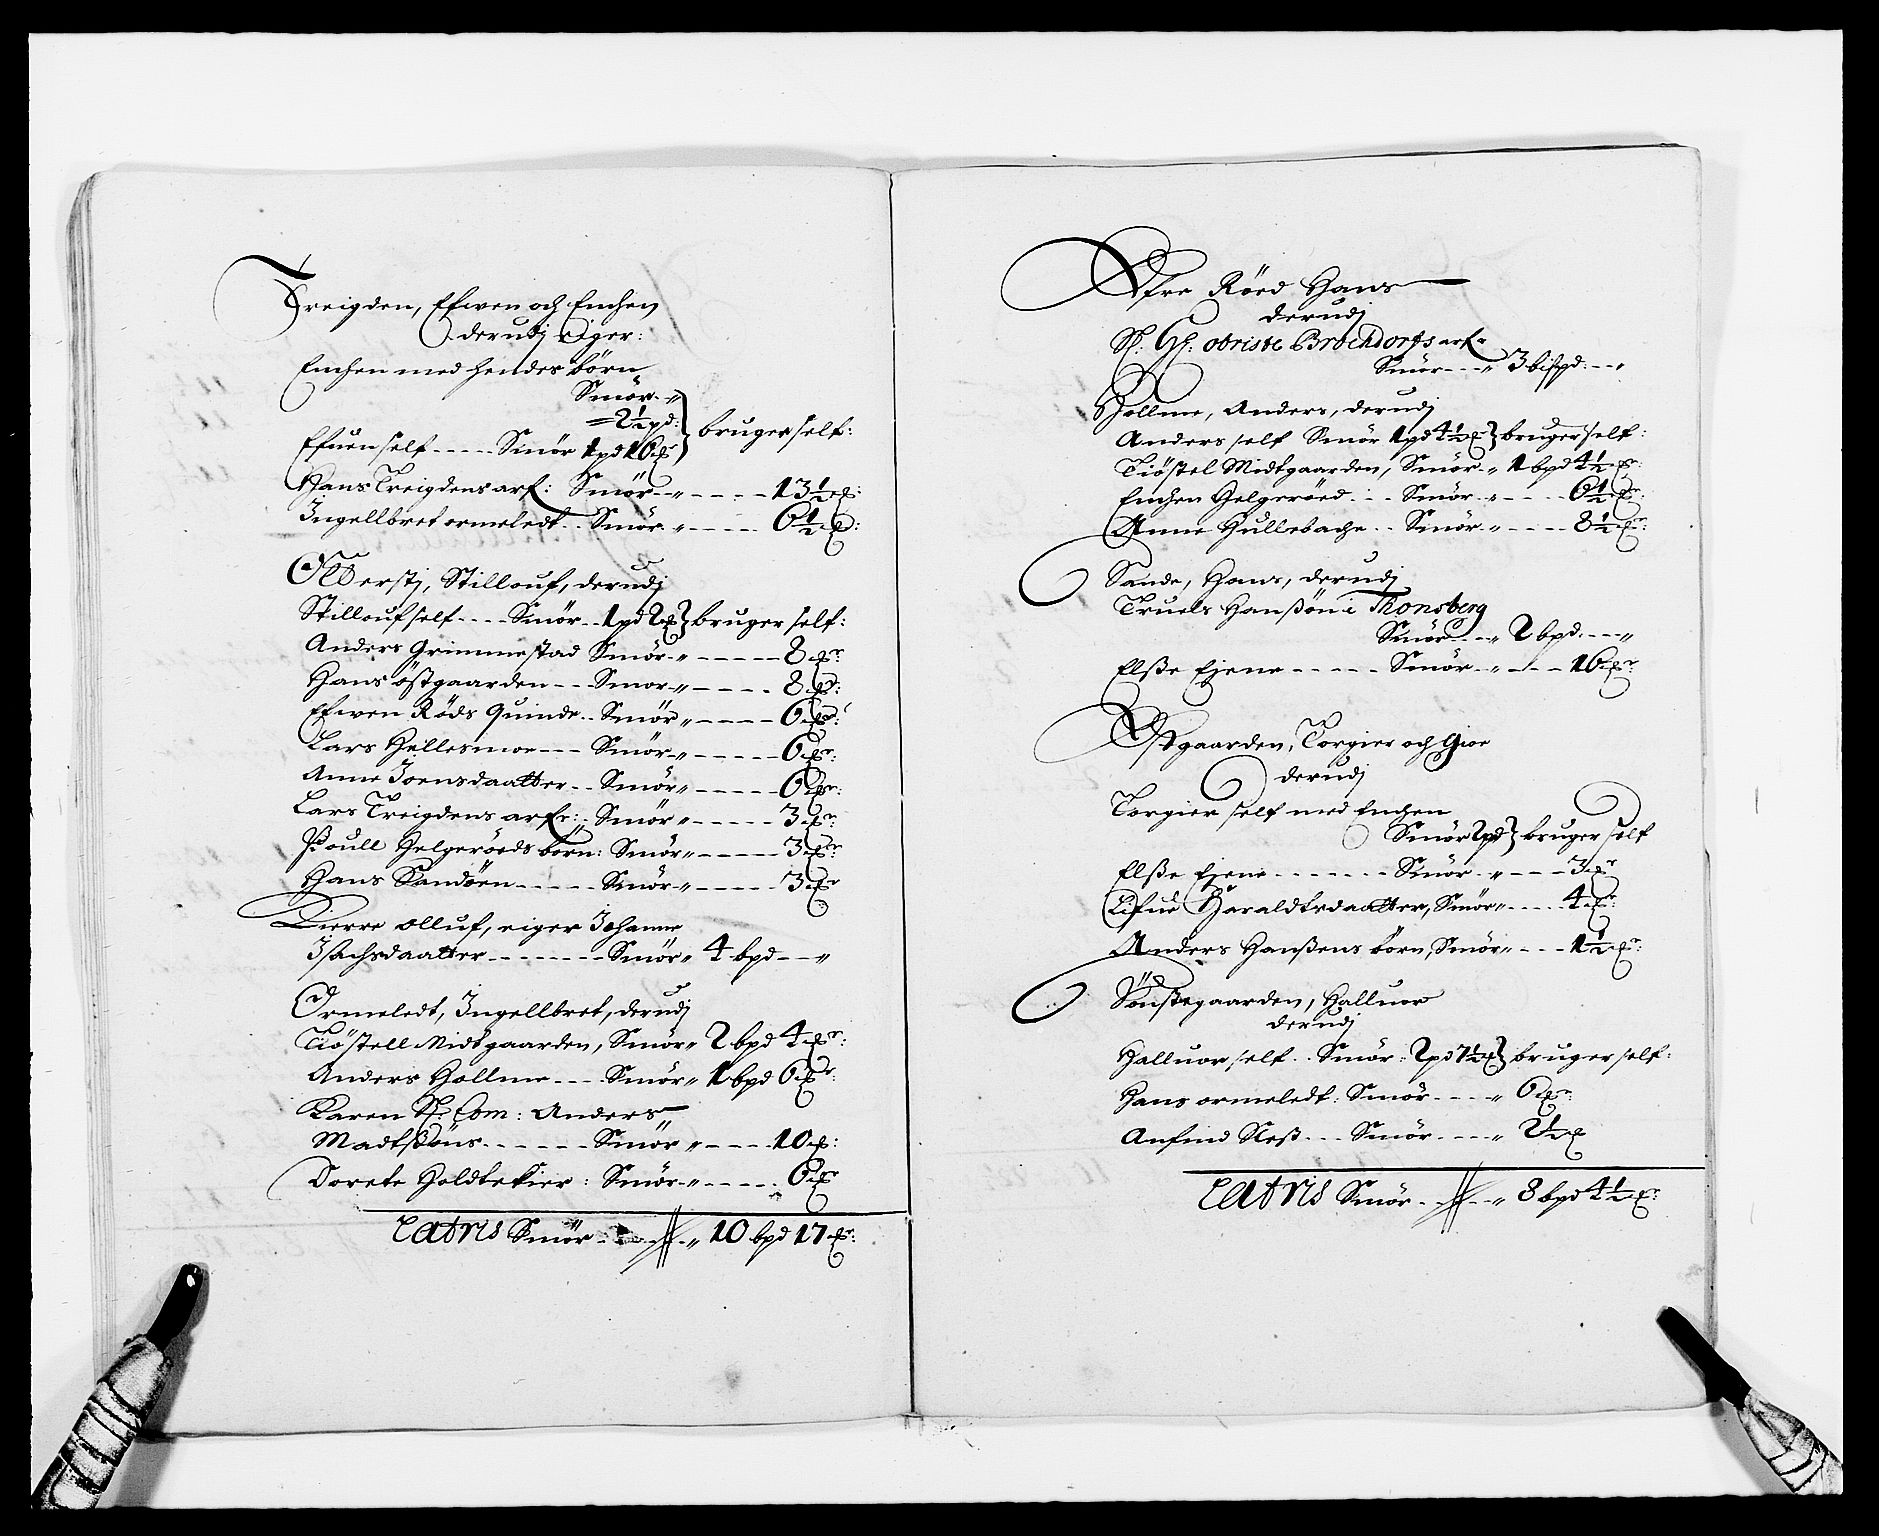 Treigden, Efwen och Enchen
derudj Eiger:
Enchen med hendes börn
Smör - „
= 2½ pd:
Efuen self - - - - - Smör 1 pd 16 } bruger self:
Hans Treigdens arf: Smör - - „ - - - - - 13½
Ingellbret ormeledt - - Smör - „ - - - - - 6½
Olderstj, Stillouf, derudj
Stillouf self - - - - Smör - - 1 pd 2 } bruger self:
Anders Grimmestad Smör - „ - - - - - 8
Hans östgaarden - - - Smör - „ - - - - - 8
Efwen Röds Quinde - - Smör „ - - - - - 6
Lars Hellesmoe - - - Smör „ - - - - - 6
Anne Joensdaatter - - Smör „ - - - - - 6
Lars Treigdens arfr: - Smör „ - - - - - 3
Poull Helgeröeds börn: Smör „ - - - - - 3
Hans Sandöen - - - - - Smör „ - - - - - 3
Lierre olluf, eiger Johanne
Isachsdaatter - - - - - - - Smör „ 4 bpd - - „
Ormeledt, Ingellbret, derudj
Tiöstell Midtgaarden, Smör „ 2 bpd 4
Anders Hollme - - - - Smör „ 1 bpd 6
Karen Sl: Com: Anders
Madtßöns - - - - - - Smör „ - - - - 10
Dorete Holdtekier : Smör - „ - - - - - 6
Latris Smör - - - - „ 10 bpd 17
Öfre Röed Hans
derudj
Sl. Gl: obriste Brochdorfs arf
Smör - - - „ 3 bispd: - - „
Hollme, Anders, derudj
Anders self Smör 1 pd 4½ } bruger self:
Tiöstel Midtgaarden, Smör - „ 1 bpd 4½
Enchen Helgeröed - - - Smör - „ - - - - 6½
Anne Hullebache - - Smör - „ - - - - 8½
Sande, Hans, derudj
Truels Hanßön i Thonsberg
Smör - - - „ 2 bpd - - - „
Elße Ejene - - - - - Smör - - „ - - - 16
Östgaarden, Torgier och Gioe
derudj
Torgier self med Enchen
Smör 2 pd } bruger self
Elße Ejene - - - - - - - Smör - „ - - - 3
Lifue Haraldtsdaatter, Smör „ - - - - 4
Anders Hanßens börn, Smör „ - - - 1½
Sönstegaarden, Halluor
derudj
Halluor self - - Smör - 2 pd 7½ } bruger self:
Hans ormeledt: Smör - - - - „ 6
Anfind Neß - - - Smör - - - - „
Latris Smör - - - - „ 8 bpd 4½